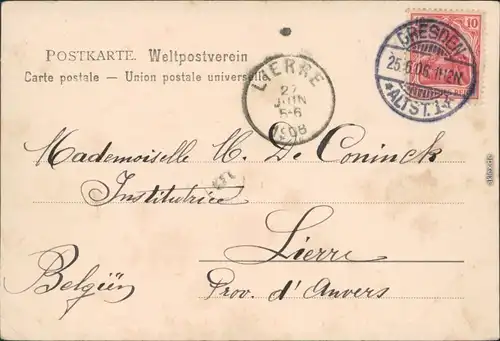 POSTKARTE. Weltpostverein
Carte postale — Union postale universelle
LIERRE
27
JUIN
5-6
1906
DRESDEN
*ALTST. 1
10
Mademoiselle M. De Coninck
Institutrice
Lierre
Belgien
Prov. d'Anvers
akpool.de